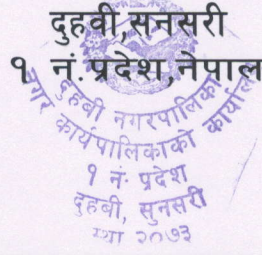 दुहवी,सनसरी
१ नं.प्रदेश,नेपाल
दुहबी नगरपालिका
नगर कार्यपालिकाको कार्याल
१ नं. प्रदेश
दुहबी, सुनसरी
स्था २०७३